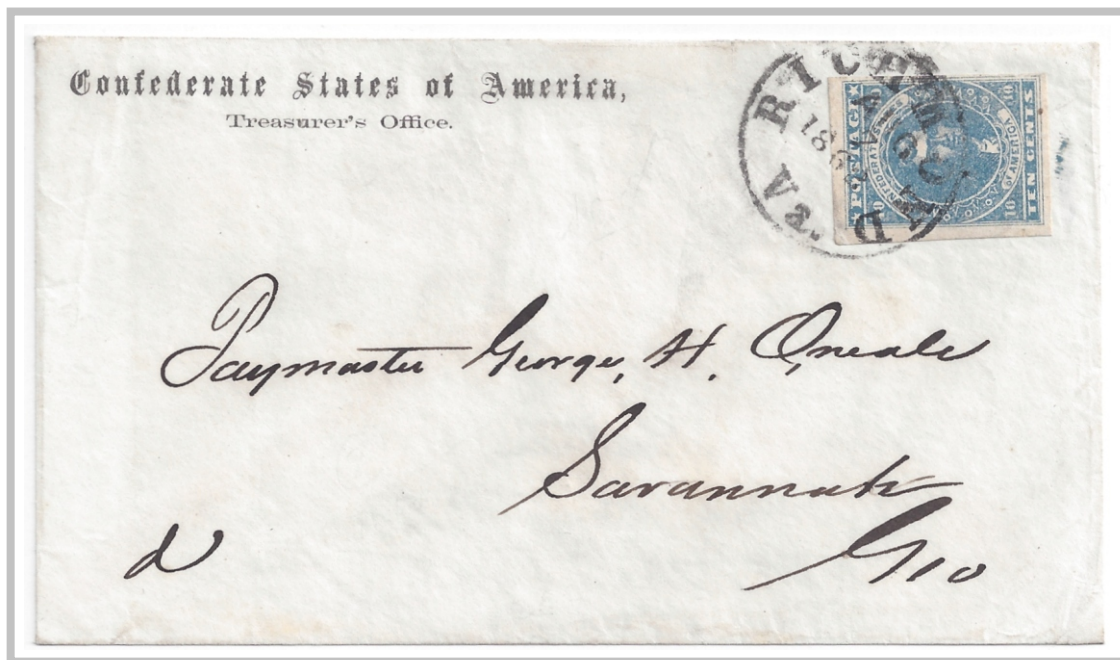 Confederate States of America,
Treasurer's Office.
RICHMOND VA.
186
POSTAGE
CONFEDERATE STATES
OF AMERICA
TEN CENTS
10
10
10
Paymaster George, H. Oneale
Savannah
Geo